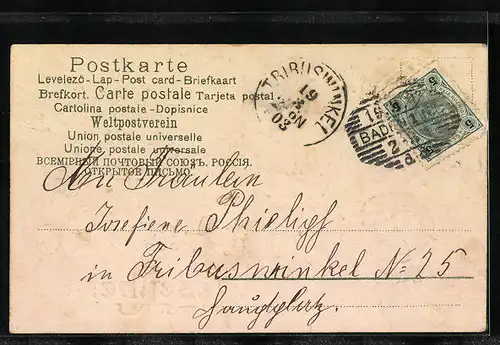 Postkarte
Levelező-Lap-Post card-Briefkaart
Brefkort. Carte postale Tarjeta postal.
Cartolina postale-Dopisnice
Weltpostverein
Union postale universelle
Unione postale universale
ВСЕМІРНЫЙ ПОЧТОВЫЙ СОЮЗЪ. РОССІЯ.
ОТКРЫТОЕ ПИСЬМО.
TRIBUSWINKEL
19
03
BADEN
5
An Fräulein
Josefiene
in Tribuswinkel № 25
Hauptplatz.